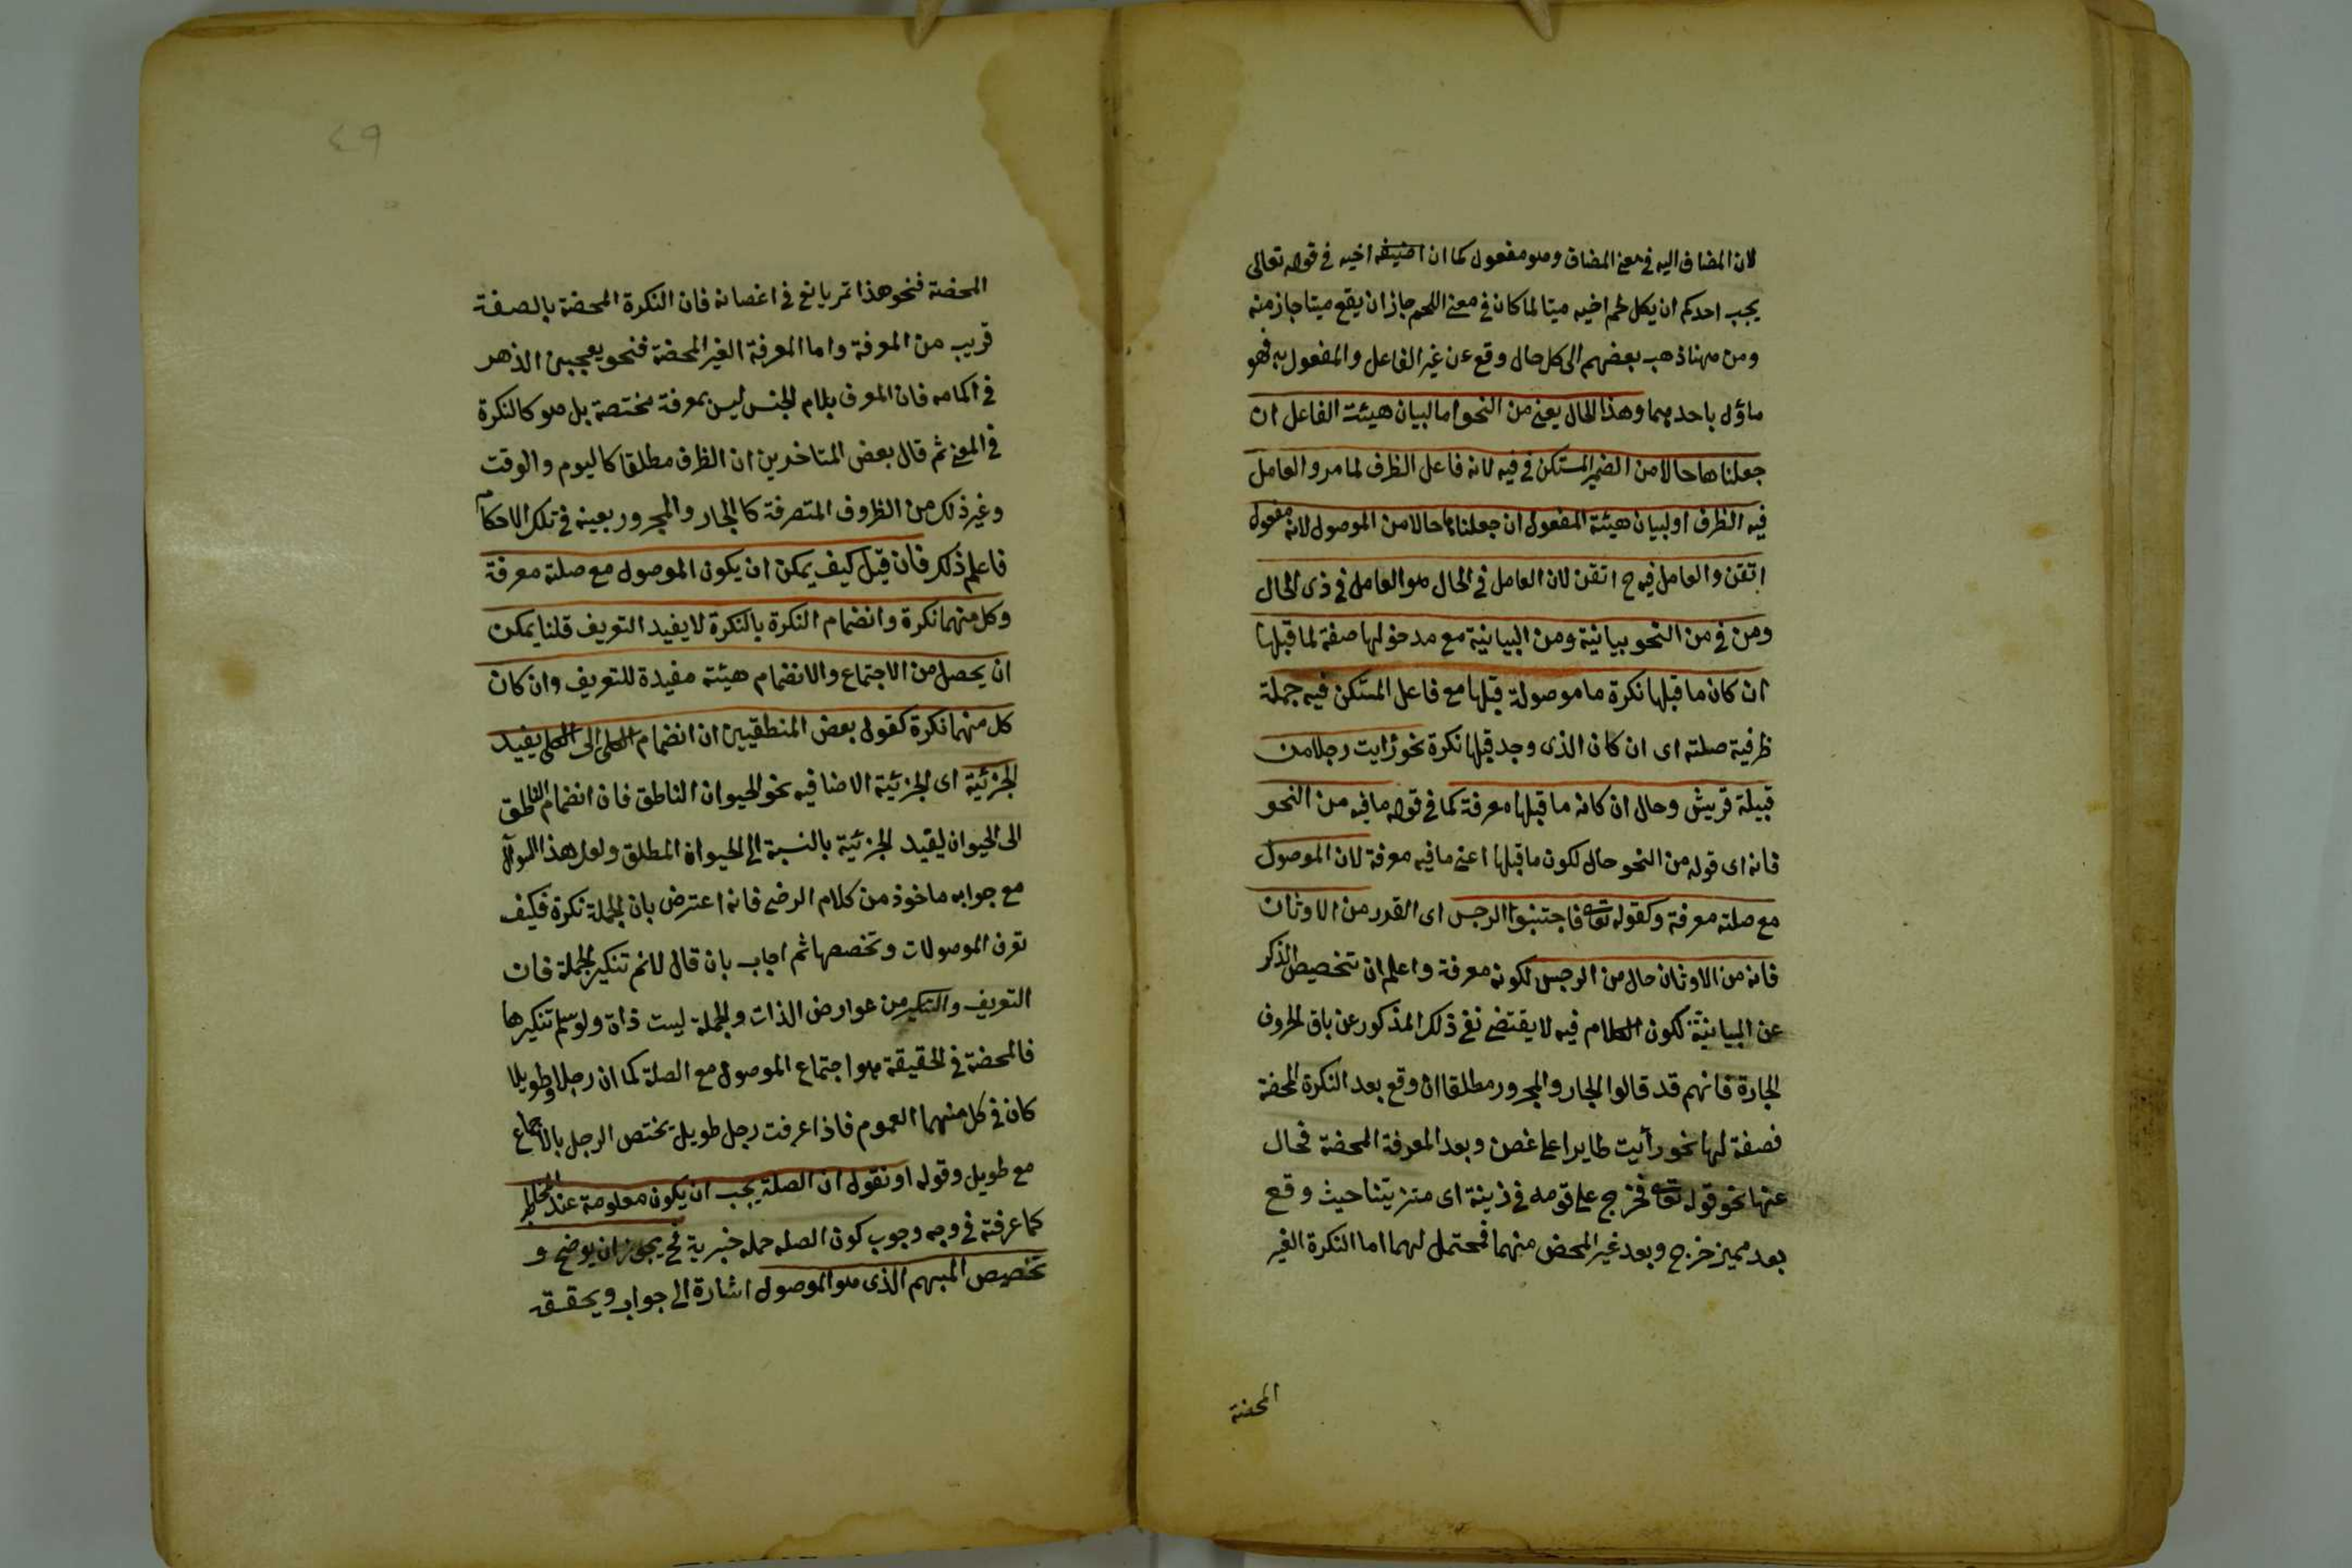 لان المضاف اليه فى معنى المضاف وهو مفعول كما ان اضيف اخيه فى قوله تعالى
يحب احدكم ان يكل لحم اخيه ميتا لما كان فى معنى اللحم جاز ان يقع ميتا جاز منه
ومن ههنا ذهب بعضهم الى كل حال وقع عن غير الفاعل والمفعول به فهو
ماؤل باحدهما وهذا الحال يعنى من النحو اما لبيان هيئة الفاعل ان
جعلناها حالا من الضمير المستكن فى فيه لانه فاعل الظرف لما مر والعامل
فيه الظرف او لبيان هيئة المفعول ان جعلناها حالا من الموصول لانه مفعول
اتقن والعامل فيه ح اتقن لان العامل فى الحال هو العامل فى ذى الحال
ومن فى من النحو بيانية ومن البيانية مع مدخولها صفة لما قبلها
ان كان ما قبلها نكرة ما موصولة قبلها مع فاعل المستكن فيه جملة
ظرفية صلته اى ان كان الذى وجد قبلها نكرة نحو رايت رجلا من
قبيلة قريش وحال ان كانه ما قبلها معرفة كما فى قوله ما فيه من النحو
فانه اى قوله من النحو حال لكون ما قبلها اعنى ما فيه معرفة لان الموصول
مع صلته معرفة وكقوله تعا فاجتنبوا الرجس اى القدر من الاوثان
فانه من الاوثان حال من الرجس لكونه معرفة واعلم ان تخصيص الذكر
عن البيانيّة لكون الكلام فيه لا يقتضى نفى ذلك المذكور عن باق الحروف
الجارة فانهم قد قالوا الجار والمجرور مطلقا ان وقع بعد النكرة المحضة
فصفة لها نحو رأيت طايرا على غصن وبعد المعرفة المحضة فحال
عنها نحو قوله تعا فخرج على قومه فى زينة اى متزيتنا حيث وقع
بعد مميز خرج وبعد غير المحض منهما فمحتمل لهما اما النكرة الغير
المحضة
٤٩
المحضة فنحو هذا تمر يانع فى اغصانه فان النكرة المحضة بالصفة
قريب من المعرفة واما المعرفة الغير المحضة فنحو يعجبنى الزهر
فى اكمامه فان المعرف بلام الجنس ليس بمعرفة مختصة بل هو كالنكرة
فى المعنى ثم قال بعض المتاخرين ان الظرف مطلقا كاليوم والوقت
وغير ذلك من الظروف المتصرفة كالجار والمجرور بعينه فى تلك الاحكام
فاعلم ذلك فان قيل كيف يمكن ان يكون الموصول مع صلته معرفة
وكل منهما نكرة وانضمام النكرة بالنكرة لا يفيد التعريف قلنا يمكن
ان يحصل من الاجتماع والانضمام هيئة مفيدة للتعريف وان كان
كل منهما نكرة كقول بعض المنطقيين ان انضمام الكلى الى الكلى يفيد
الجزئية اى الجزئية الاضافيه نحو الحيوان الناطق فان انضمام الناطق
الى الحيوان ليقيد الجزئية بالنسبة الى الحيوان المطلق ولعل هذا السؤال
مع جوابه ماخوذ من كلام الرضى فانه اعترض بان الجملة نكرة فكيف
تعرف الموصولات وتخصصها ثم اجاب بان قال لانم تنكير الجملة فان
التعريف والتنكير من عوارض الذات والجملة ليست ذاة ولو سلم تنكيرها
فالمحضة فى الحقيقة هو اجتماع الموصول مع الصلة كما ان رجلا وطويلا
كان فى كل منهما العموم فاذا عرفت رجل طويل يختص الرجل بالاجتماع
مع طويل وقوله او نقول ان الصلة يجب ان يكون معلومة عند المخاطب
كما عرفته فى وجه وجوب كون الصله جمله خبرية فح يجوز ان يوضح و
تخصيص المبهم الذى هو الموصول اشارة الى جواب ويحقق